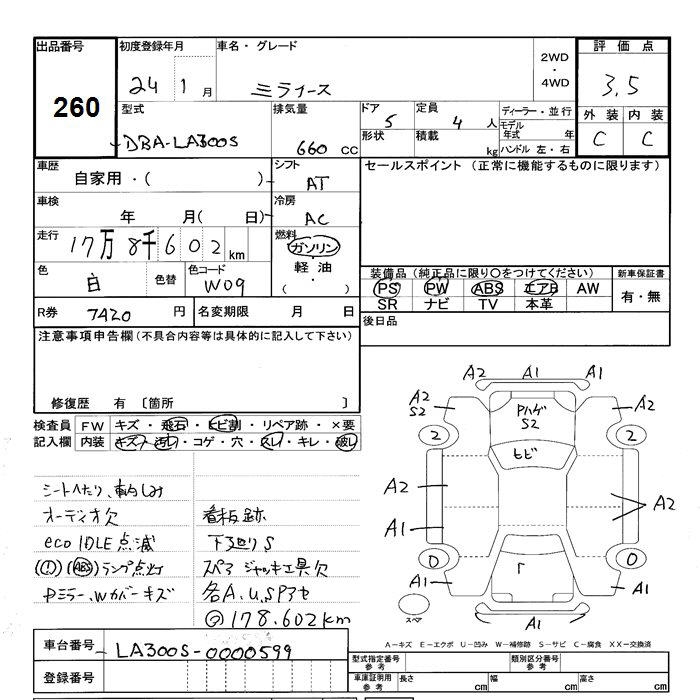 出品番号
260
初度登録年月
24 1月
車名・グレード
ミライース
2WD
・
4WD
評価点
3.5
外装 内装
C C
型式
DBA-LA300S
排気量
660 cc
ドア
5
定員
4 人
形状
積載
kg
ディーラー・並行
モデル年式 年
ハンドル 左・右
車歴
自家用・( )
シフト
AT
車検
年 月( 日)
冷房
AC
走行
17万8千602km
燃料
ガソリン
・
軽油
( )
色
白
色替
色コード
W09
R券
7420 円
名変期限 月 日
セールスポイント (正常に機能するものに限ります)
装備品(純正品に限り〇をつけてください)
PS PW ABS エアB AW
SR ナビ TV 本革
新車保証書
有・無
後日品
注意事項申告欄(不具合内容等は具体的に記入して下さい)
修復歴 有 〔箇所 〕
検査員記入欄
FW キズ・飛石・ヒビ割・リペア跡・×要
内装 キズ・汚レ・コゲ・穴・スレ・キレ・破レ
シートヘタリ、車内しみ
オーディオ欠
eco IDLE点滅
(!) (ABS)ランプ点灯
Pミラー、Wカバーキズ
看板跡
下廻りS
スペア ジャッキ工具欠
各A.U.SPヌセ
◎178.602km
A2 A1 A1
A2
S2
PハゲS2
A2
A1
2 2
ヒビ
A2
A1
A2
0 0
A1
A1
Γ
A1
スペア
A-キズ E-エクボ U-凹み W-補修跡 S-サビ C-腐食 XX-交換済
車台番号
LA300S-0000599
登録番号
型式指定番号
参考
類別区分番号
参考
車庫証明用
参考
長さ cm 幅 cm 高さ cm